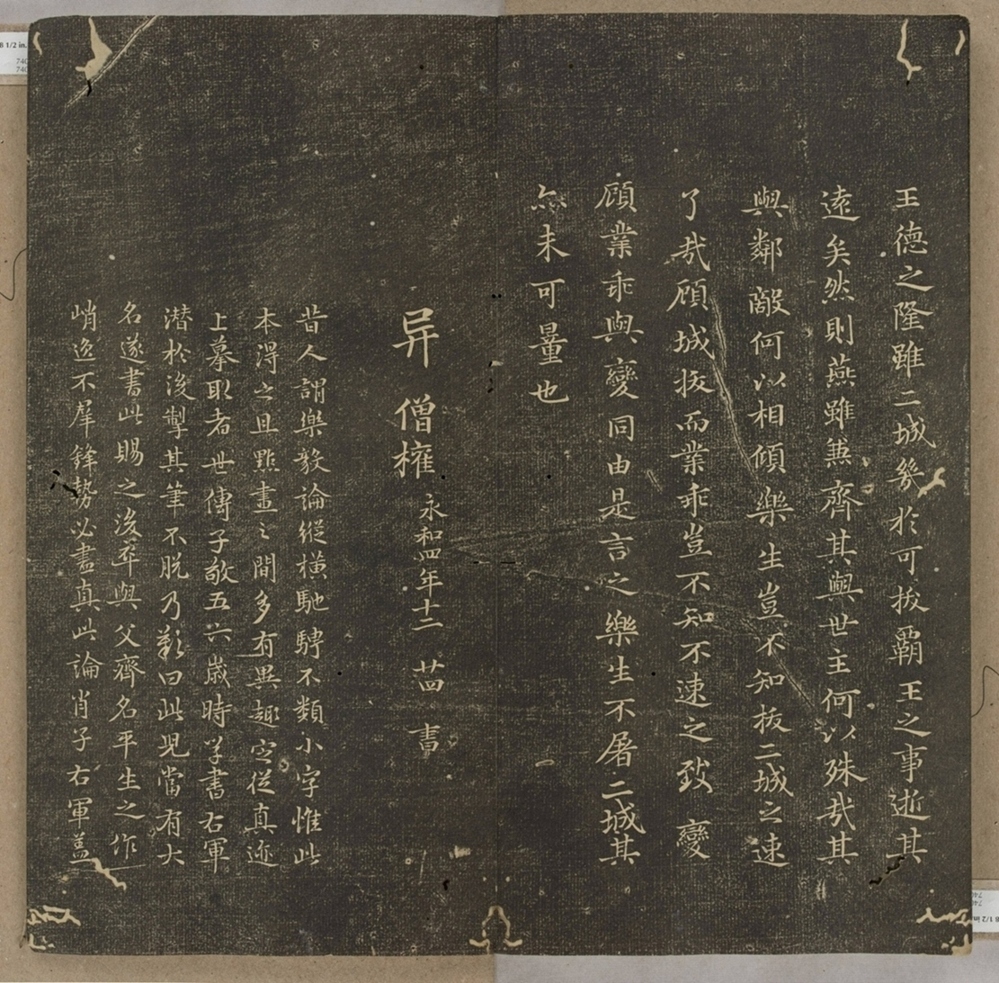 王德之隆雖二城幾於可拔霸王之事逝其
遠矣然則燕雖兼齊其與世主何以殊哉其
與鄰敵何以相傾樂生豈不知拔二城之速
了哉顧城拔而業乖豈不知不速之致變
顧業乖與變同由是言之樂生不屠二城其
亦未可量也
异僧權
永和四年十二
書
昔人謂樂毅論縱橫馳騁不類小字惟此
本得之且點畫之間多有異趣定從真迹
上摹取者世傳子敬五六歲時學書右軍
潛於後掣其筆不脫乃歎曰此兒當有大
名遂書此賜之後卒與父齊名平生之作
峭逸不羣鋒勢必盡真此論肖子右軍蓋
8 1/2 in.